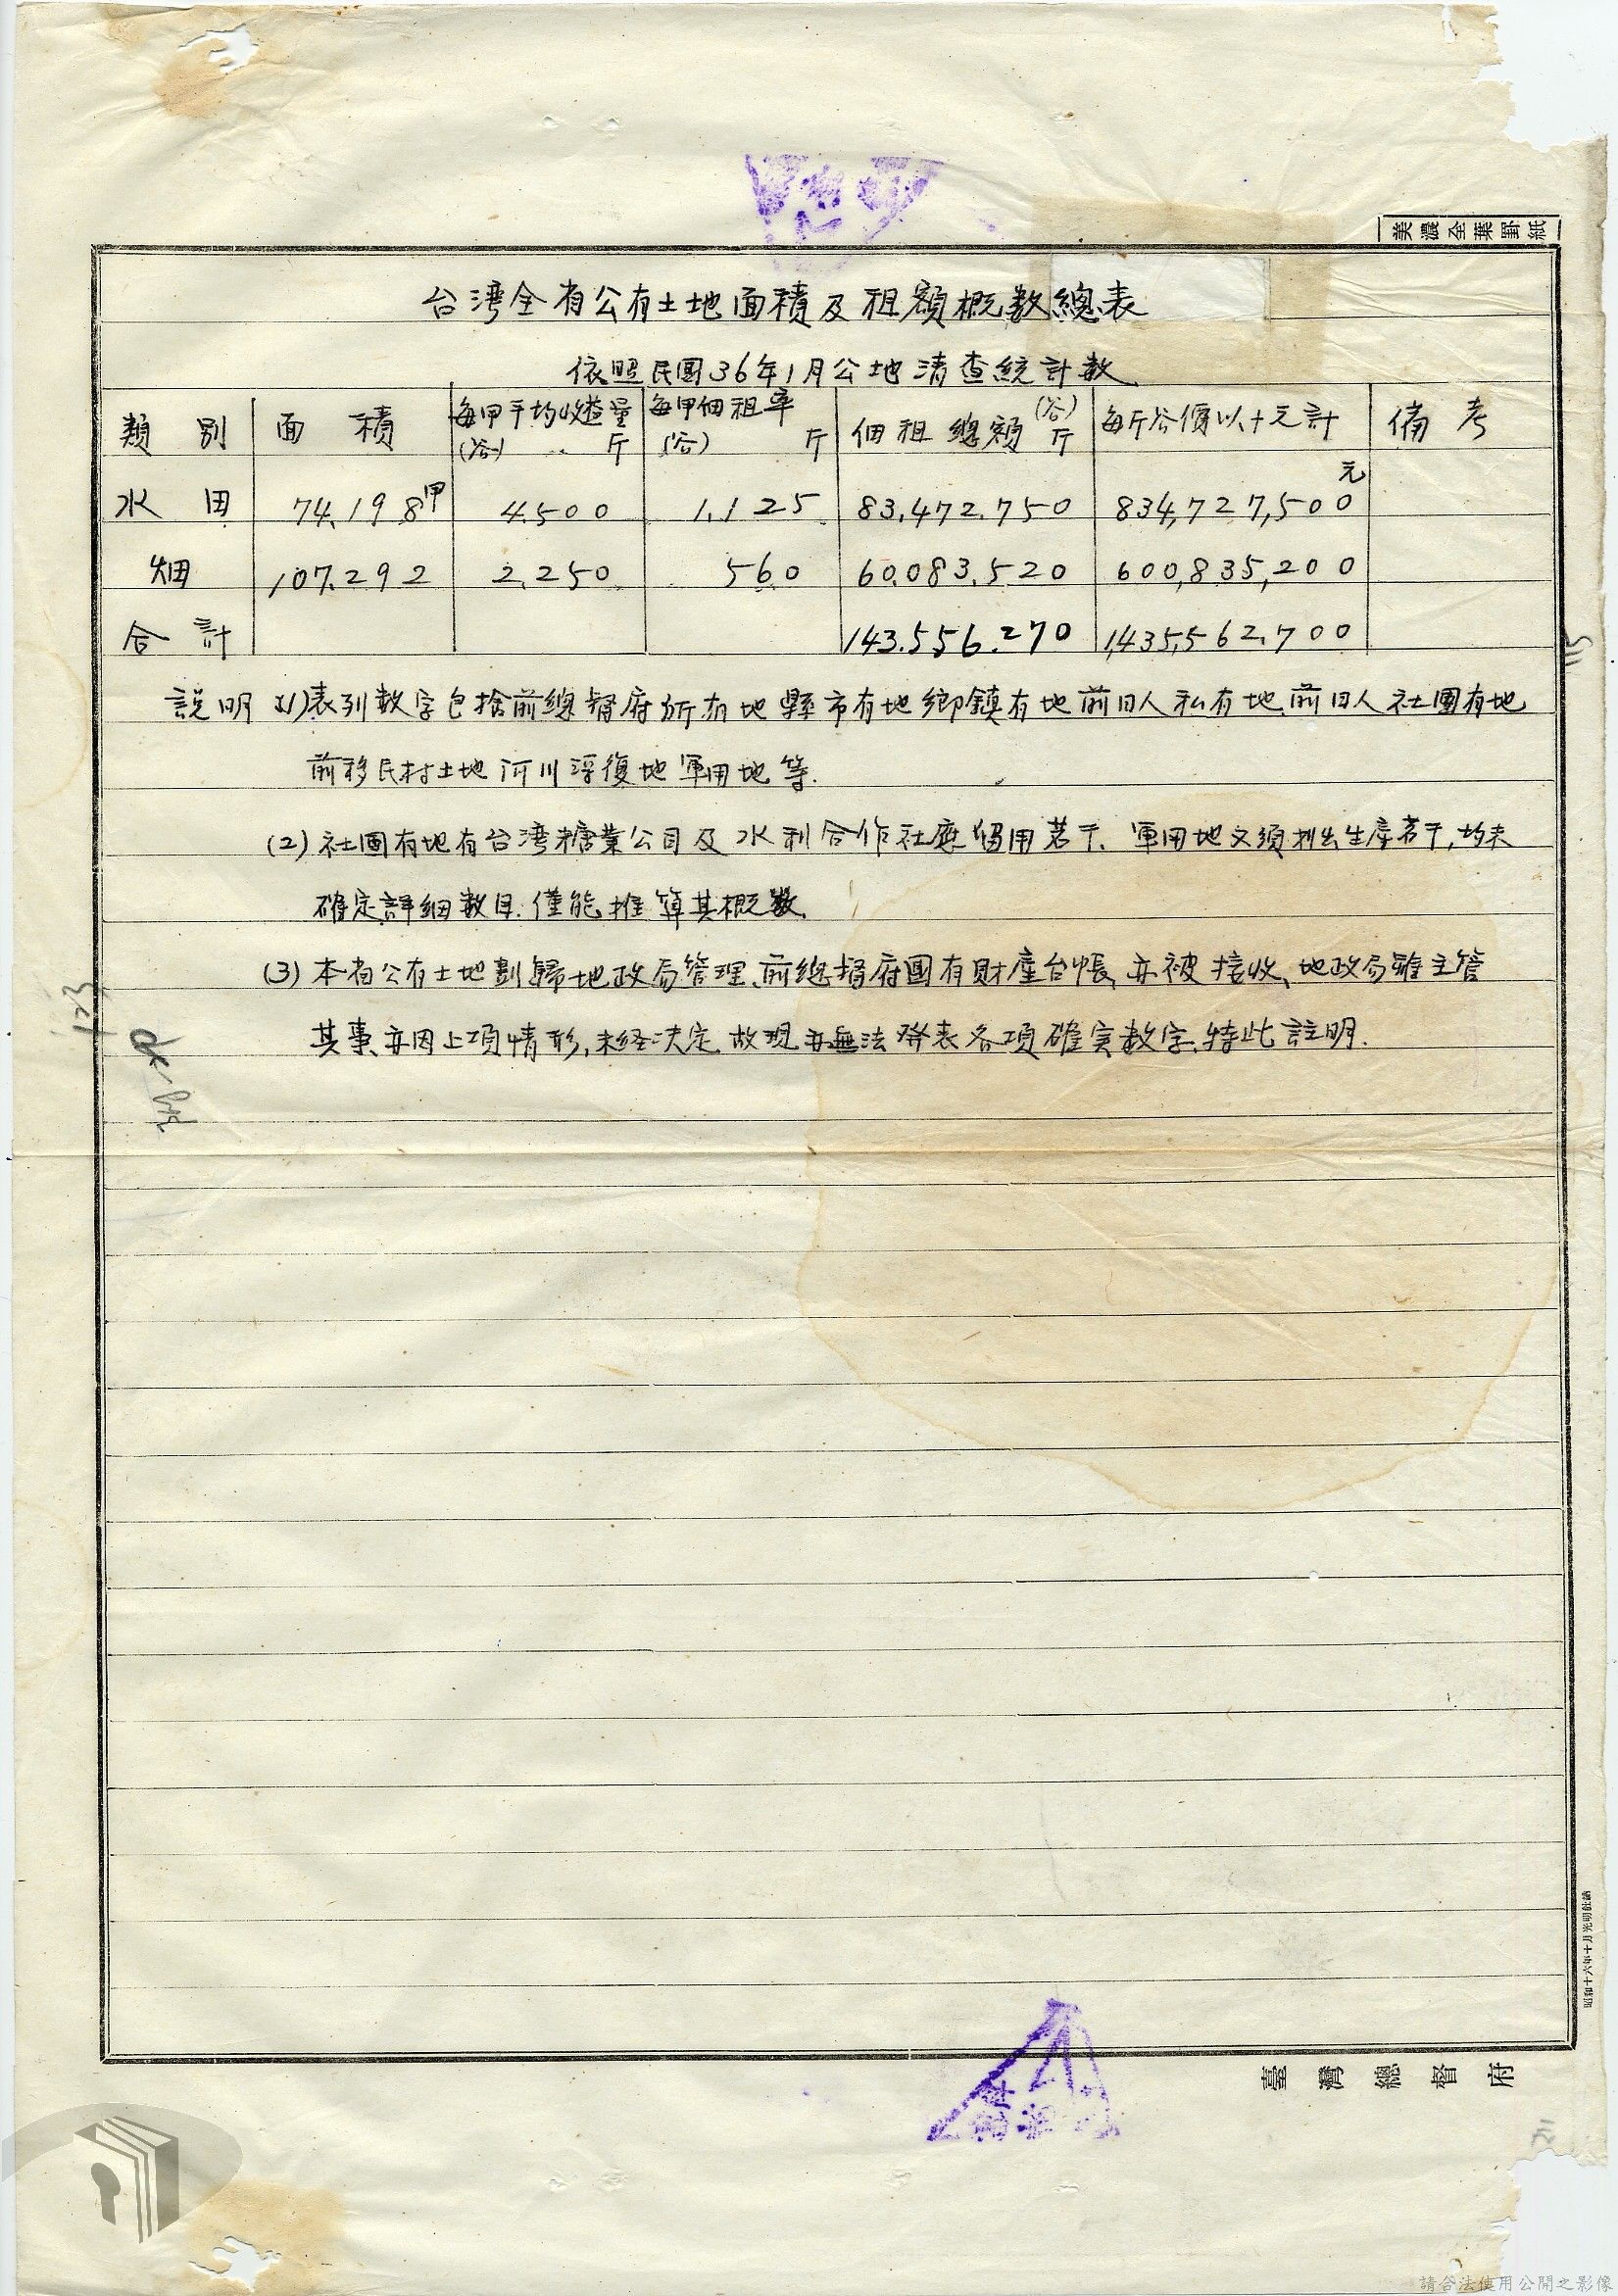 美濃全葉罫紙
台湾全省公有土地面積及租額概数總表
依照民國36年1月公地清查統計数
類別 面積 每甲平均收益量(谷)斤 每甲佃租率(谷)斤 佃租總額(谷)斤 每斤谷價以十元計 備考
水田 74,198甲 4,500 1,125 83,472,750 834,727,500元
畑 107,292 2,250 560 60,083,520 600,835,200
合計 143,556,270 1,435,562,700
説明 (1)表列数字包捨前總督府所有地縣市有地鄉鎮有地前日人私有地前日人社團有地
前移民村土地河川浮復地軍用地等.
(2)社團有地有台湾糖業公司及水利合作社應留用若干、軍用地又須判出生産若干,均未
確定詳細数目.僅能推算其概数.
(3)本省公有土地劃歸地政局管理、前總督府國有財產台帳亦被接收、地政局雖主管
其事、亦因上項情形,未経决定.故現亦無法発表各項確実数字.特此註明.
昭和十六年十月光明社納
臺灣總督府
請合法使用公開之影像